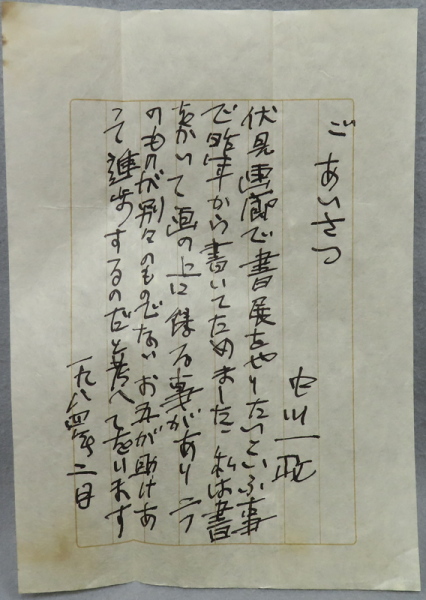 ごあいさつ
中川一政
伏見画廊で書展をやりたいといふ事
で昨年から書いてためました 私は書
をかいて画の上に得る事があり 二つ
のものが別々のものでない お互が助けあ
って進歩するのだと考へてをります
一九八四年二月